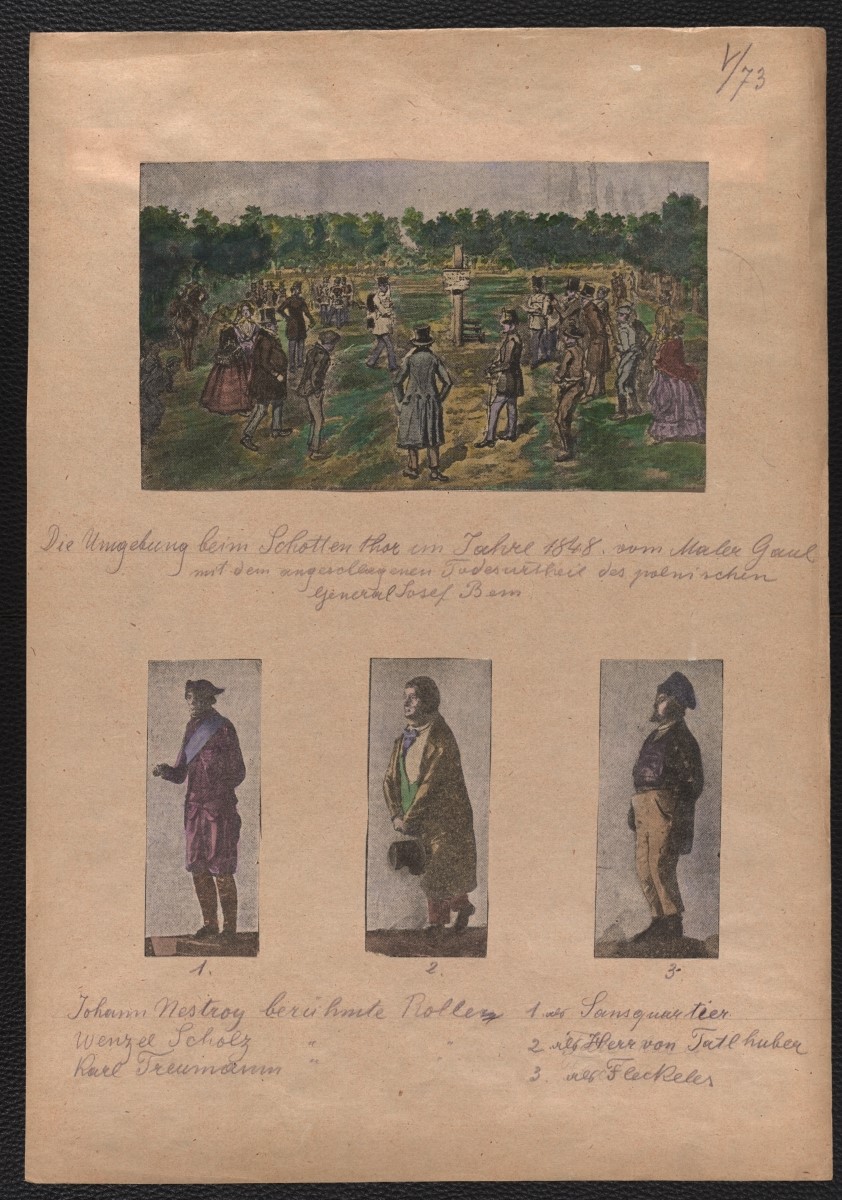 V/73
Die Umgebung beim Schotten thor im Jahre 1848. vom Maler Gaul
mit dem angeschlagenen Todesurtheil des polnischen
General Josef Bem
1.
2.
3.
Johann Nestroy berühmte Rollen 1 als Sansquartier
Wenzel Scholz " " 2 als Herr von Tatlhuber
Karl Treumann " 3. als Fleckeles